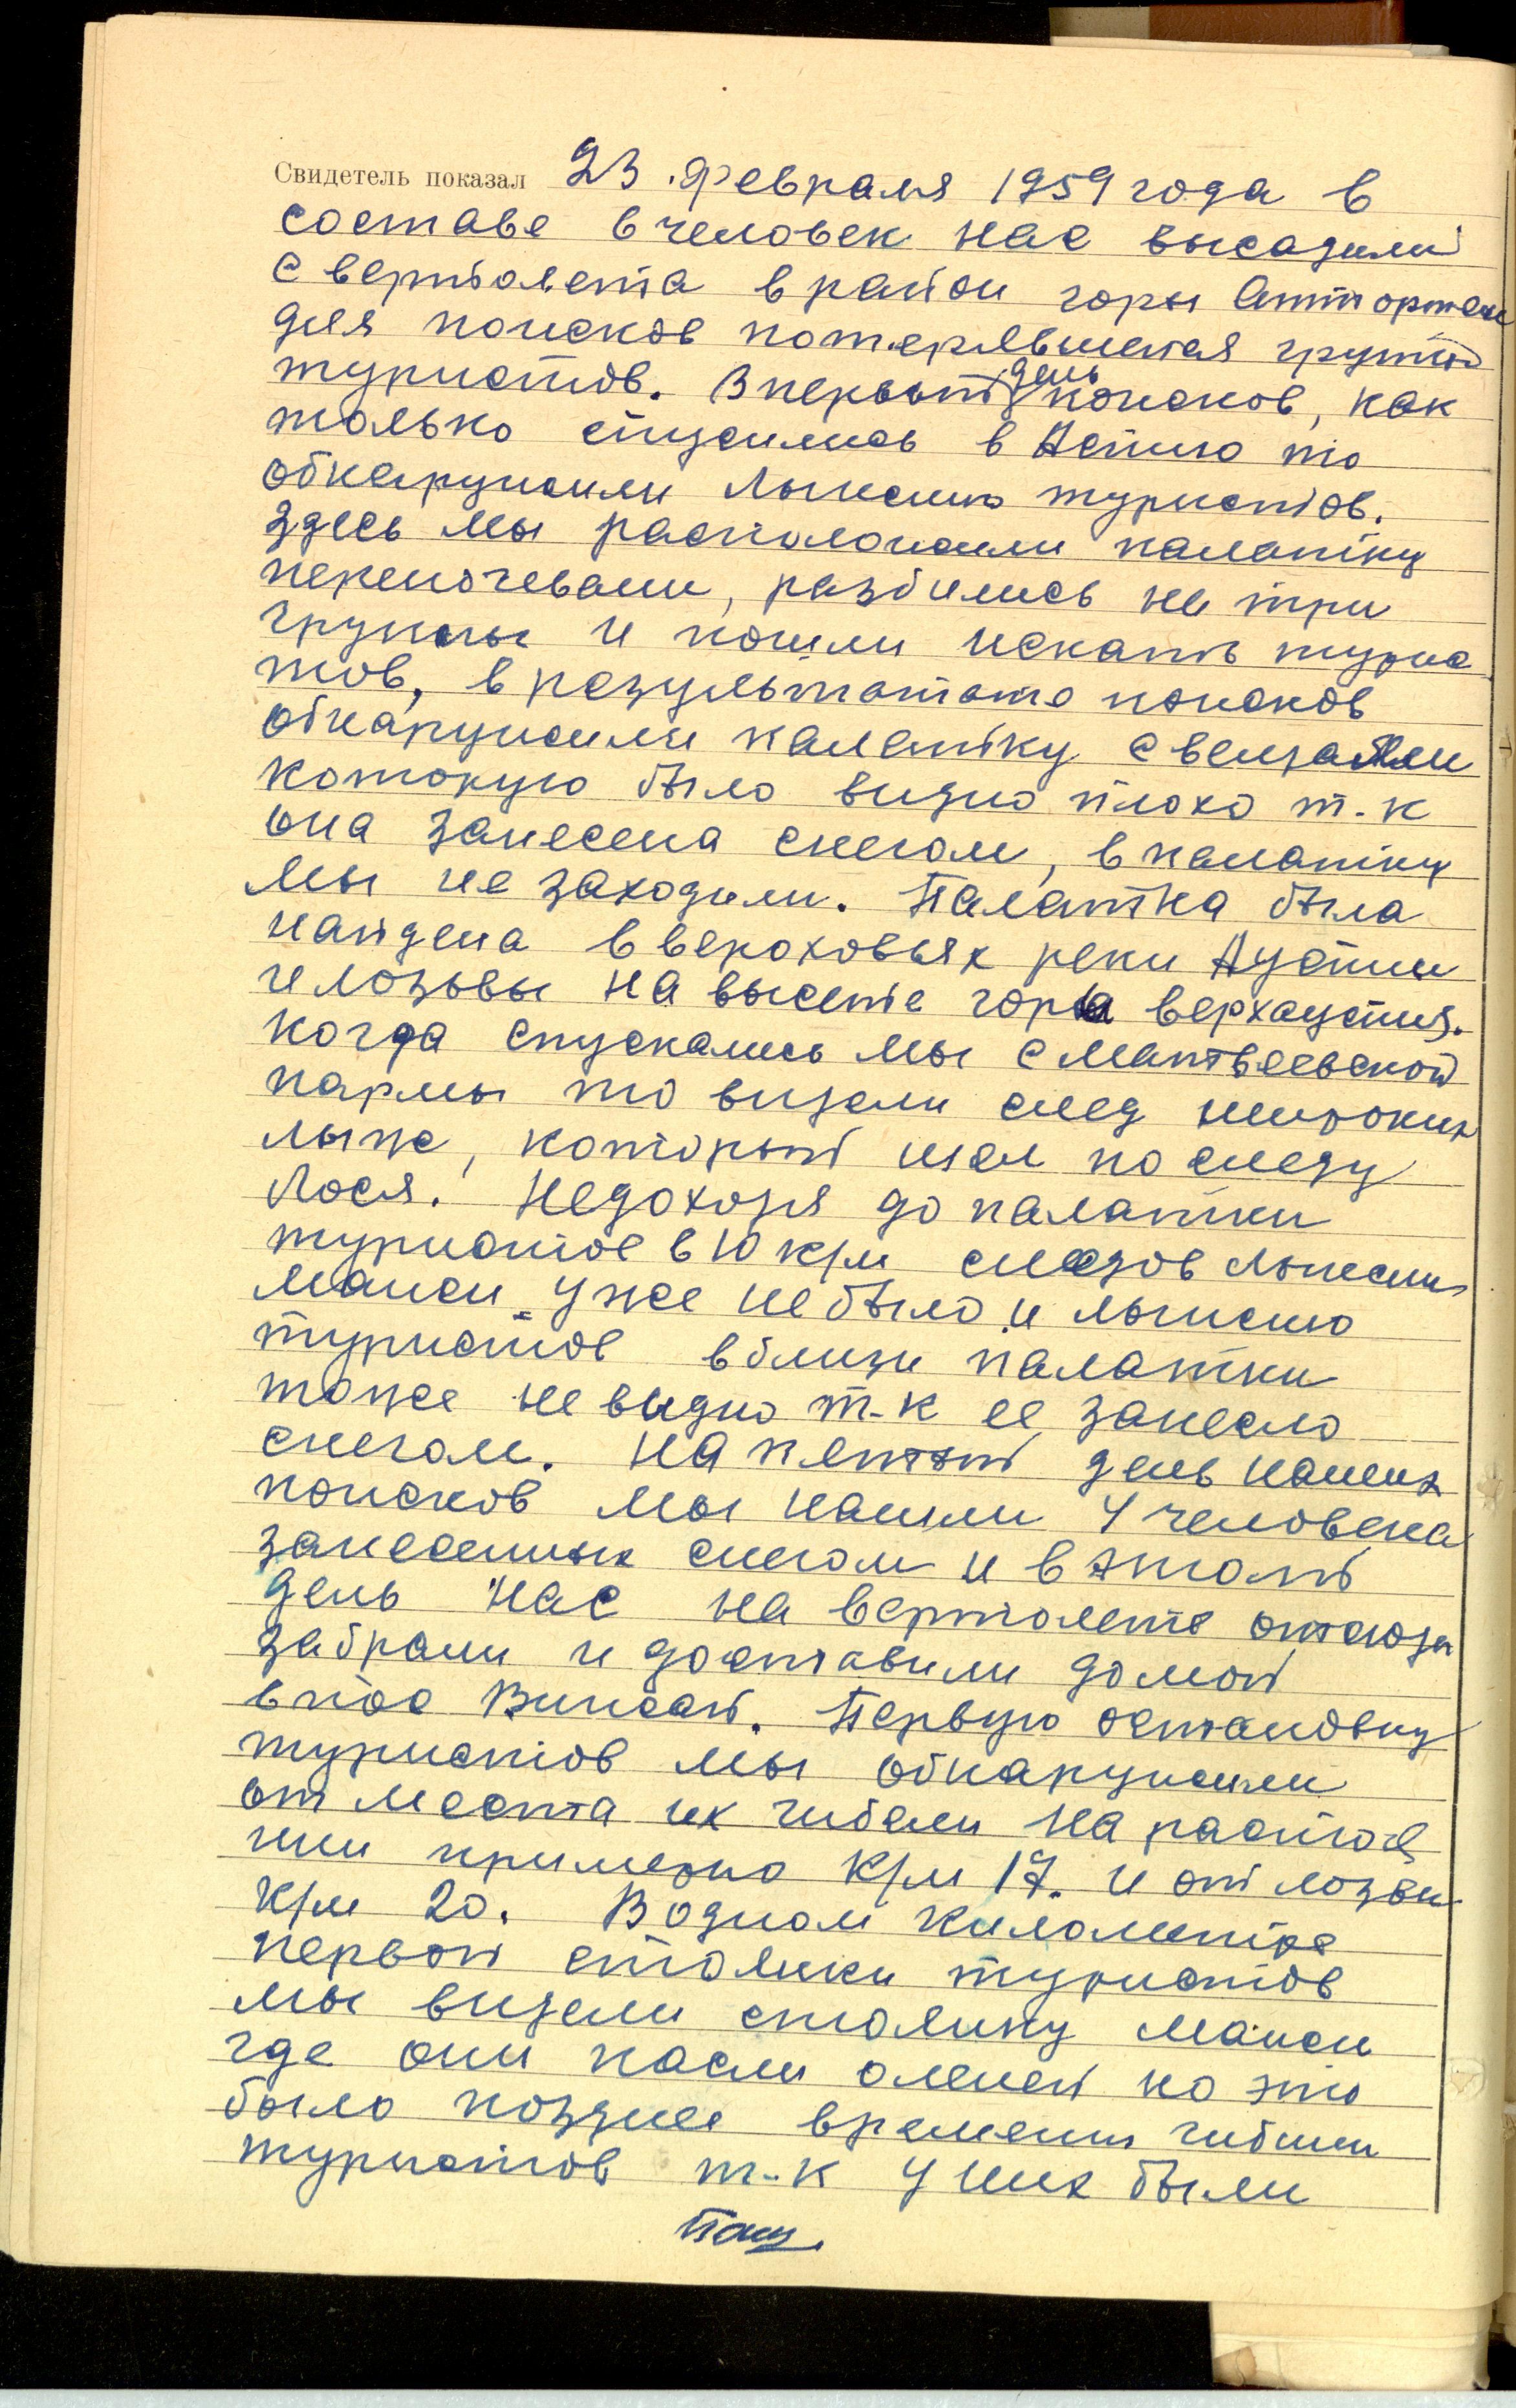 Свидетель показал 23 февраля 1959 года в
составе 6 человек нас высадили
с вертолета в район горы Отторжен
для поисков потерявшеися группы
туристов. В первый день поисков, как
только спусились в Аспию то
обнаружили лыжню туристов.
Здесь мы расположили палатку
переночевали, разбились на три
группы и пошли искать турис
тов, в результатате поисков
обнаружили палатку с вещами
которую было видно плохо т.к
она занесена снегом, в палатку
мы не заходили. Палатка была
найдена в верховьях реки Ауспии
и лозьвы на высоте горы верхауспия.
когда спускались мы с Матвеевской
пармы то видели след широких
лыж, который шел по следу
Лося. Недоходя до палатки
туристов в 10 к/м следов лыжни
манси уже не было и лыжню
туристов вблизи палатки
тоже не видно т-к ее занесло
снегом. На пятый день наших
поисков мы нашли 4 человека
занесенных снегом и в этот
день нас на вертолете отсюда
забрали и доставили домой
в пос Вижай. Первую остановку
туристов мы обнаружили
от места их гибели на растоя
нии примерно к/м 17. и от лозьвы
к/м 20. В одном километре
первой стоянки туристов
мы видели стоянку манси
где они пасли оленей но это
было позднее времени гибели
туристов т-к у них были